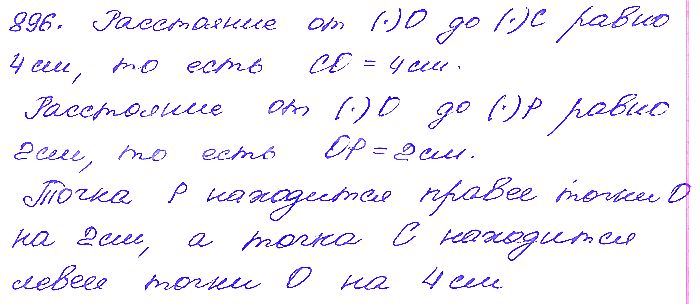 896. Расстояние от (·)O до (·)C равно
4см, то есть CO = 4см.
Расстояние от (·)O до (·)P равно
2см, то есть OP = 2см.
Точка P находится правее точки O
на 2см, а точка C находится
левее точки O на 4см